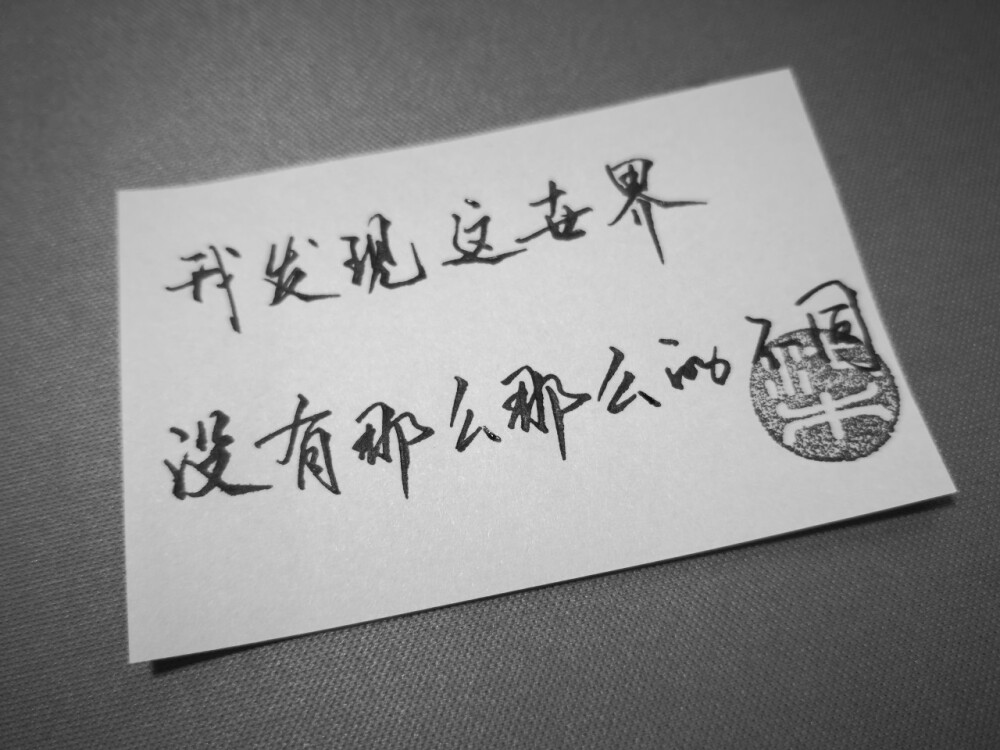 我发现这世界
没有那么那么的不同